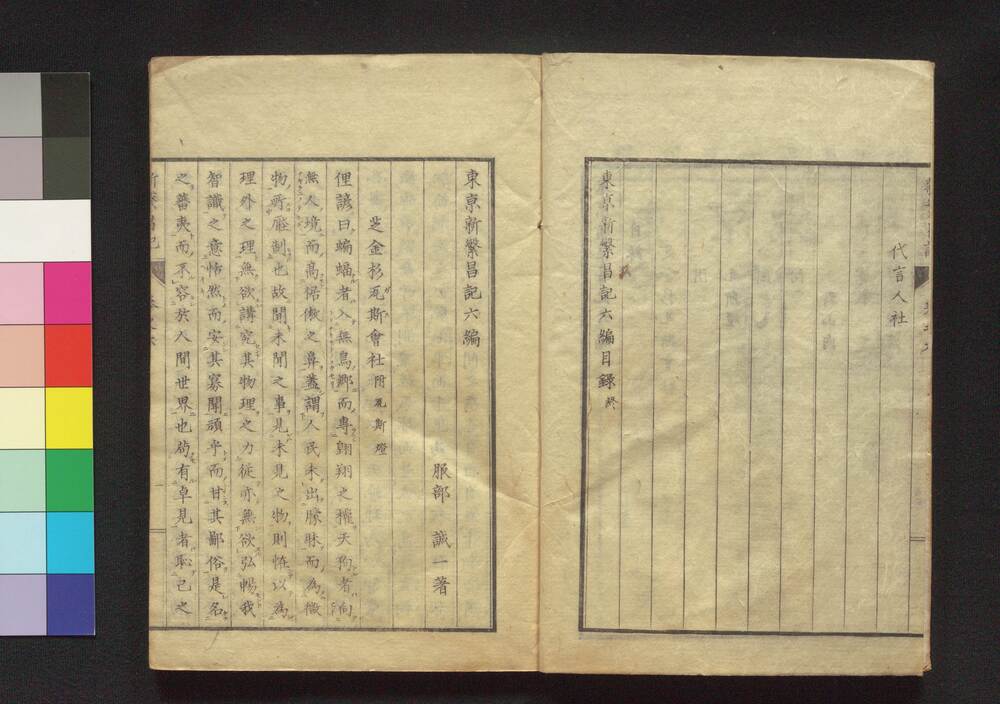 代言人社
東京新繁昌記六編目録終
東京新繁昌記六編
服部誠一著
芝金杉瓦斯會社附瓦斯燈
俚諺曰蝙蝠者入無鳥鄕而專翺翔之權天狗者向
無人境而高倨傲之鼻蓋謂人民未出脉眛而為微
物所壓制也故聞未聞之事見未見之物則恠以為
理外之理無欲講究其物理之力従亦無欲弘暢我
智識之意怖然而安其寡聞頑乎而甘其鄙俗是名
之蕃夷而不容於人間世界也苟有卓見者恥己之